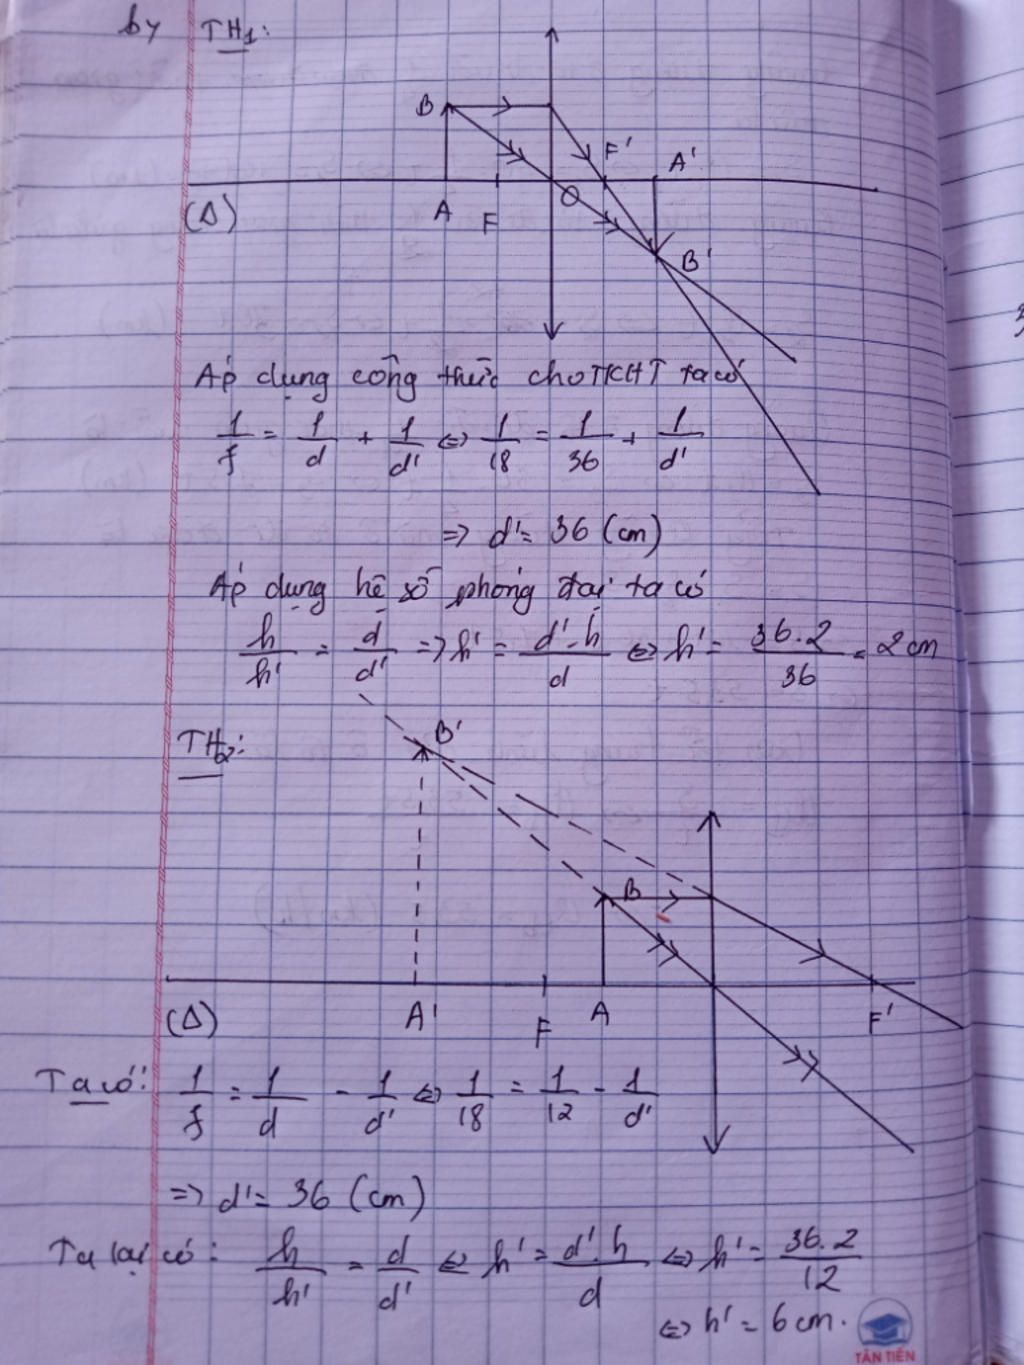 by TH1:
B
F'
A'
O
(Δ)
A
F
B'
Áp dụng công thức cho TKHT ta có
1/f = 1/d + 1/d' ⇔ 1/18 = 1/36 + 1/d'
=> d' = 36 (cm)
Áp dụng hệ số phóng đại ta có
h/h' = d/d' => h' = d'.h/d ⇔ h' = 36.2/36 = 2cm
TH2:
B'
B
(Δ)
A'
F
A
F'
Ta có: 1/f = 1/d - 1/d' ⇔ 1/18 = 1/12 - 1/d'
=> d' = 36 (cm)
Ta lại có: h/h' = d/d' ⇔ h' = d'.h/d ⇔ h' = 36.2/12
⇔ h' = 6cm.
TÂN TIẾN